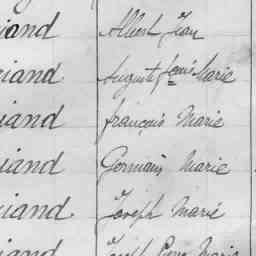 iand Albert Jean
iand Auguste Louis Marie
iand françois Marie
iand Germain Marie
iand Joseph Marie
iand Joseph Marie